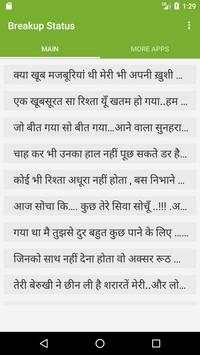 1:29
Breakup Status
MAIN
MORE APPS
क्या खूब मजबूरियां थी मेरी भी अपनी ख़ुशी ...
एक खूबसूरत सा रिश्ता यूँ खतम हो गया..हम ...
जो बीत गया सो बीत गया...आने वाला सुनहरा...
चाह कर भी उनका हाल नहीं पूछ सकते डर है...
कोई भी रिश्ता अधूरा नहीं होता , बस निभाने ...
आज सोचा कि.... कुछ तेरे सिवा सोचूँ ..!!! .अ...
गया था मैं तुझसे दुर बहुत कुछ पाने के लिए ....
जिनको साथ नहीं देना होता वो अक्सर रूठ ...
तेरी बेरुखी ने छीन ली है शरारतें मेरी..और लो...